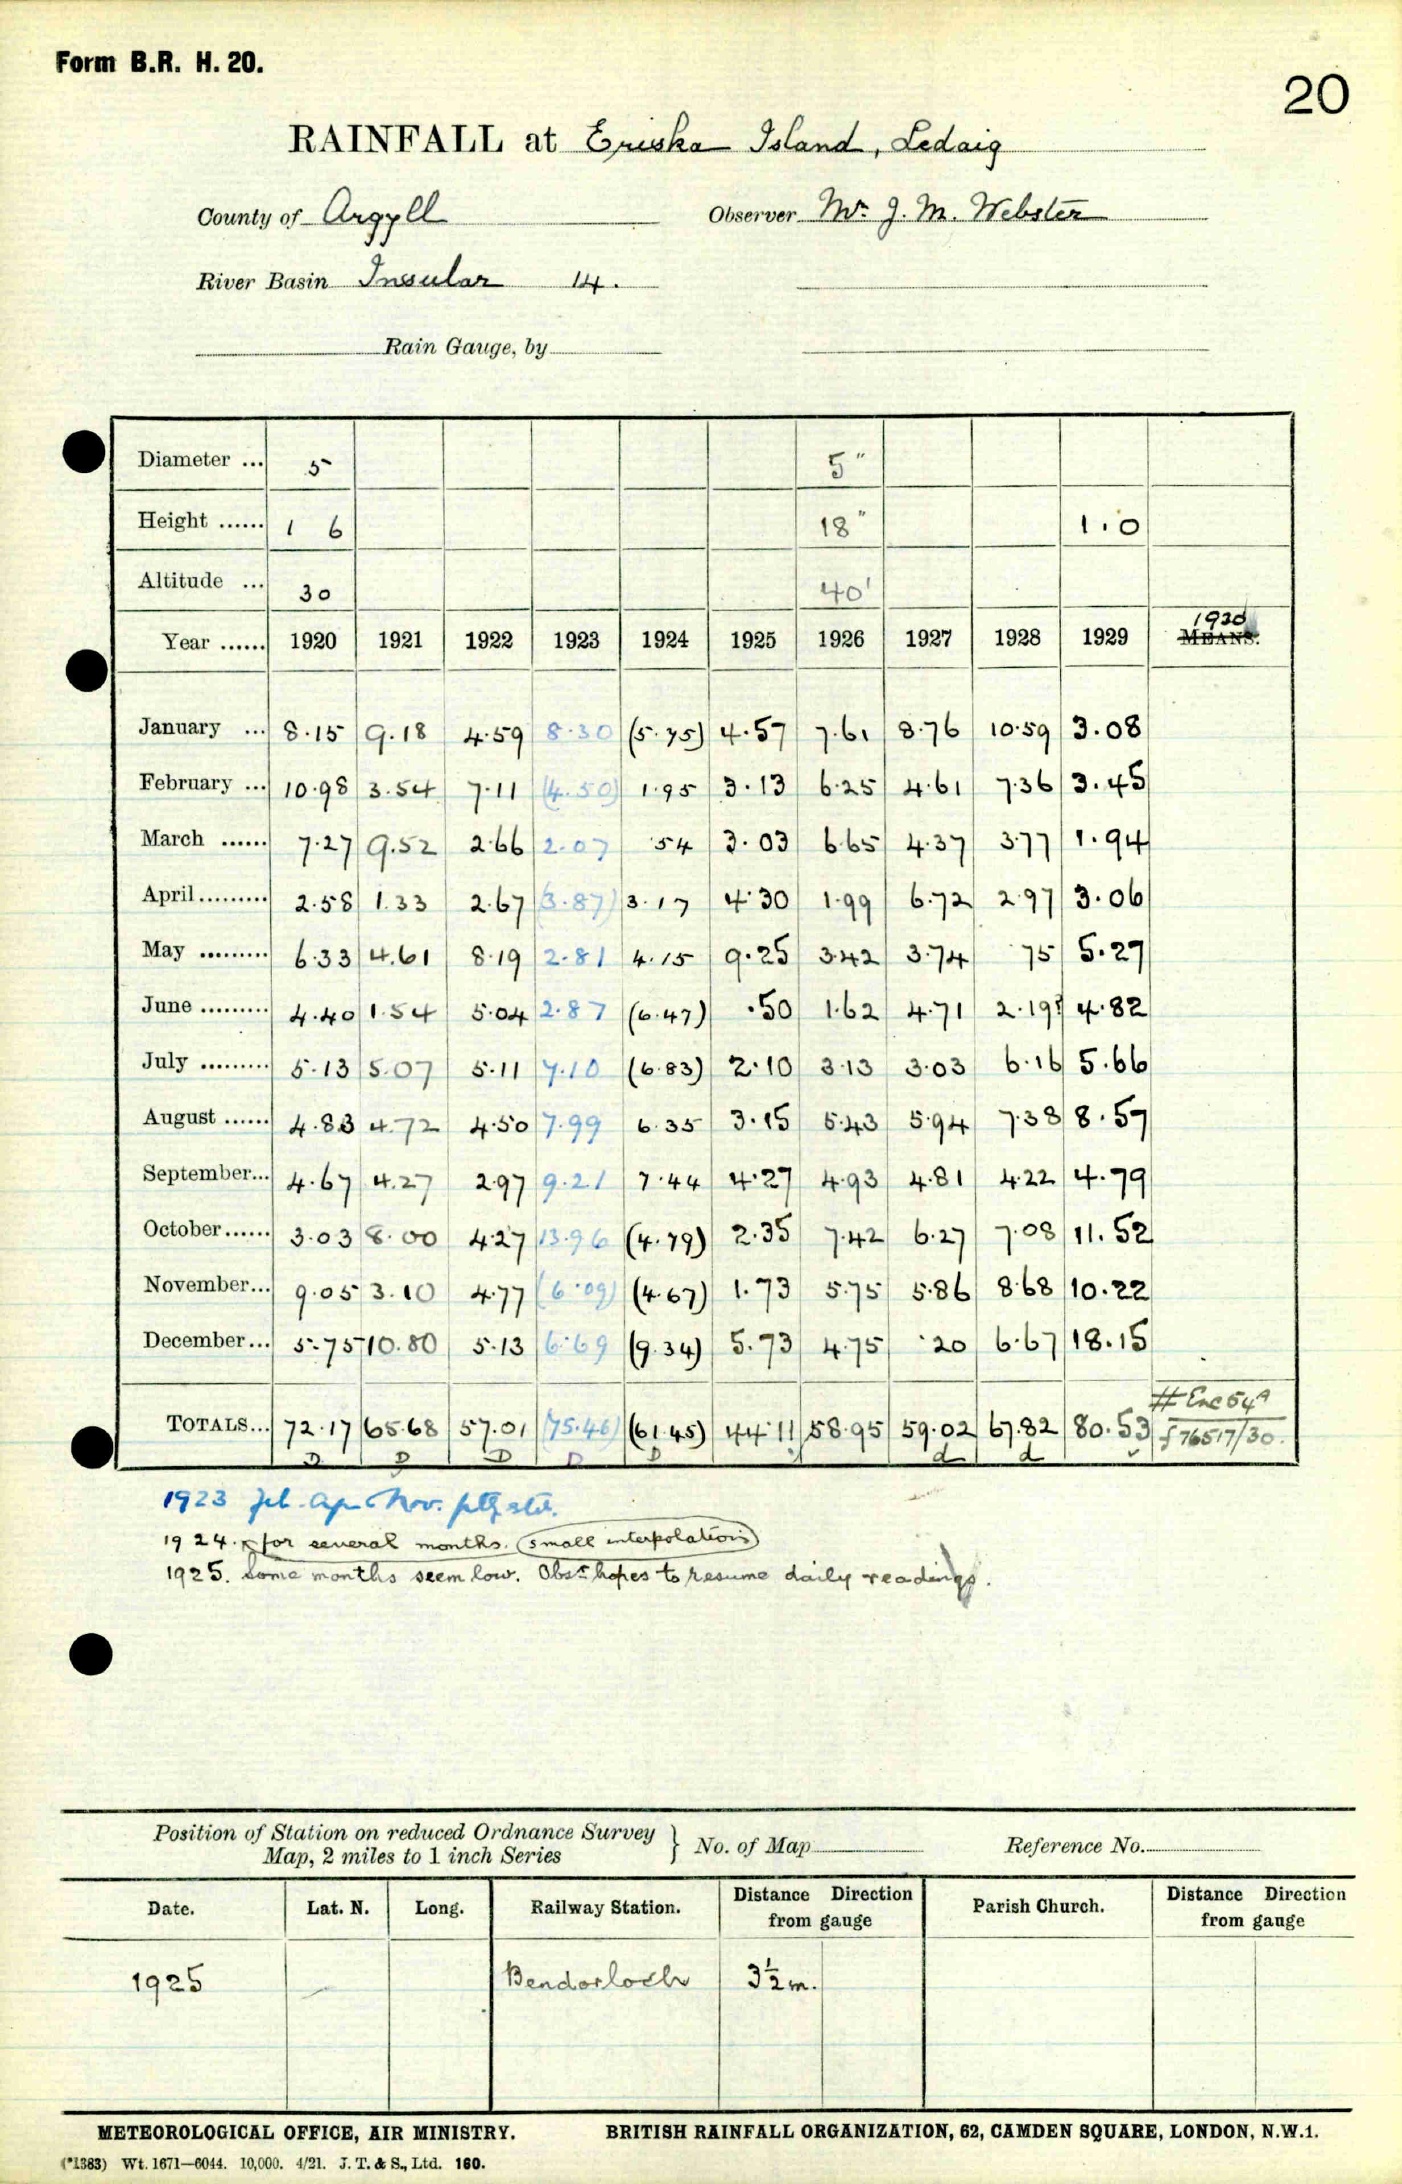 Form B.R. H. 20.
20
RAINFALL at Eriska Island, Ledaig
County of Argyll Observer Mr. J. M. Webster
River Basin Insular 14.
Rain Gauge, by
Diameter ... 5 5"
Height ...... 1 6 18" 1.0
Altitude ... 30 40'
Year ...... 1920 1921 1922 1923 1924 1925 1926 1927 1928 1929 1930 MEANS.
January ... 8.15 9.18 4.59 8.30 (5.75) 4.57 7.61 8.76 10.59 3.08
February ... 10.98 3.54 7.11 (4.50) 1.95 3.13 6.25 4.61 7.36 3.45
March ...... 7.27 9.52 2.66 2.07 .54 3.03 6.65 4.37 3.77 1.94
April ......... 2.58 1.33 2.67 (3.87) 3.17 4.30 1.99 6.72 2.97 3.06
May ......... 6.33 4.61 8.19 2.81 4.15 9.25 3.42 3.74 .75 5.27
June ......... 4.40 1.54 5.04 2.87 (6.47) .50 1.62 4.71 2.19? 4.82
July ......... 5.13 5.07 5.11 7.10 (6.83) 2.10 3.13 3.03 6.16 5.66
August ...... 4.83 4.72 4.50 7.99 6.35 3.15 5.43 5.94 7.38 8.57
September... 4.67 4.27 2.97 9.21 7.44 4.27 4.93 4.81 4.22 4.79
October...... 3.03 8.00 4.27 13.96 (4.79) 2.35 7.42 6.27 7.08 11.52
November... 9.05 3.10 4.77 (6.09) (4.67) 1.73 5.75 5.86 8.68 10.22
December... 5.75 10.80 5.13 6.69 (9.34) 5.73 4.75 .20 6.67 18.15
# Enc 54A
TOTALS... 72.17 65.68 57.01 (75.46) (61.45) 44.11 58.95 59.02 67.82 80.53 f 76517/30.
D D D D D d d
1923 Feb. Apr Nov.
1924. for several months. small interpolations
1925. Some months seem low. Obsr. hopes to resume daily readings.
Position of Station on reduced Ordnance Survey
Map, 2 miles to 1 inch Series } No. of Map Reference No.
Date. Lat. N. Long. Railway Station. Distance Direction from gauge Parish Church. Distance Direction from gauge
1925 — Bendorloch 3½ m.
METEOROLOGICAL OFFICE, AIR MINISTRY. BRITISH RAINFALL ORGANIZATION, 62, CAMDEN SQUARE, LONDON, N.W.1.
(*1383) Wt. 1671—6044. 10,000. 4/21. J. T. & S., Ltd. 160.